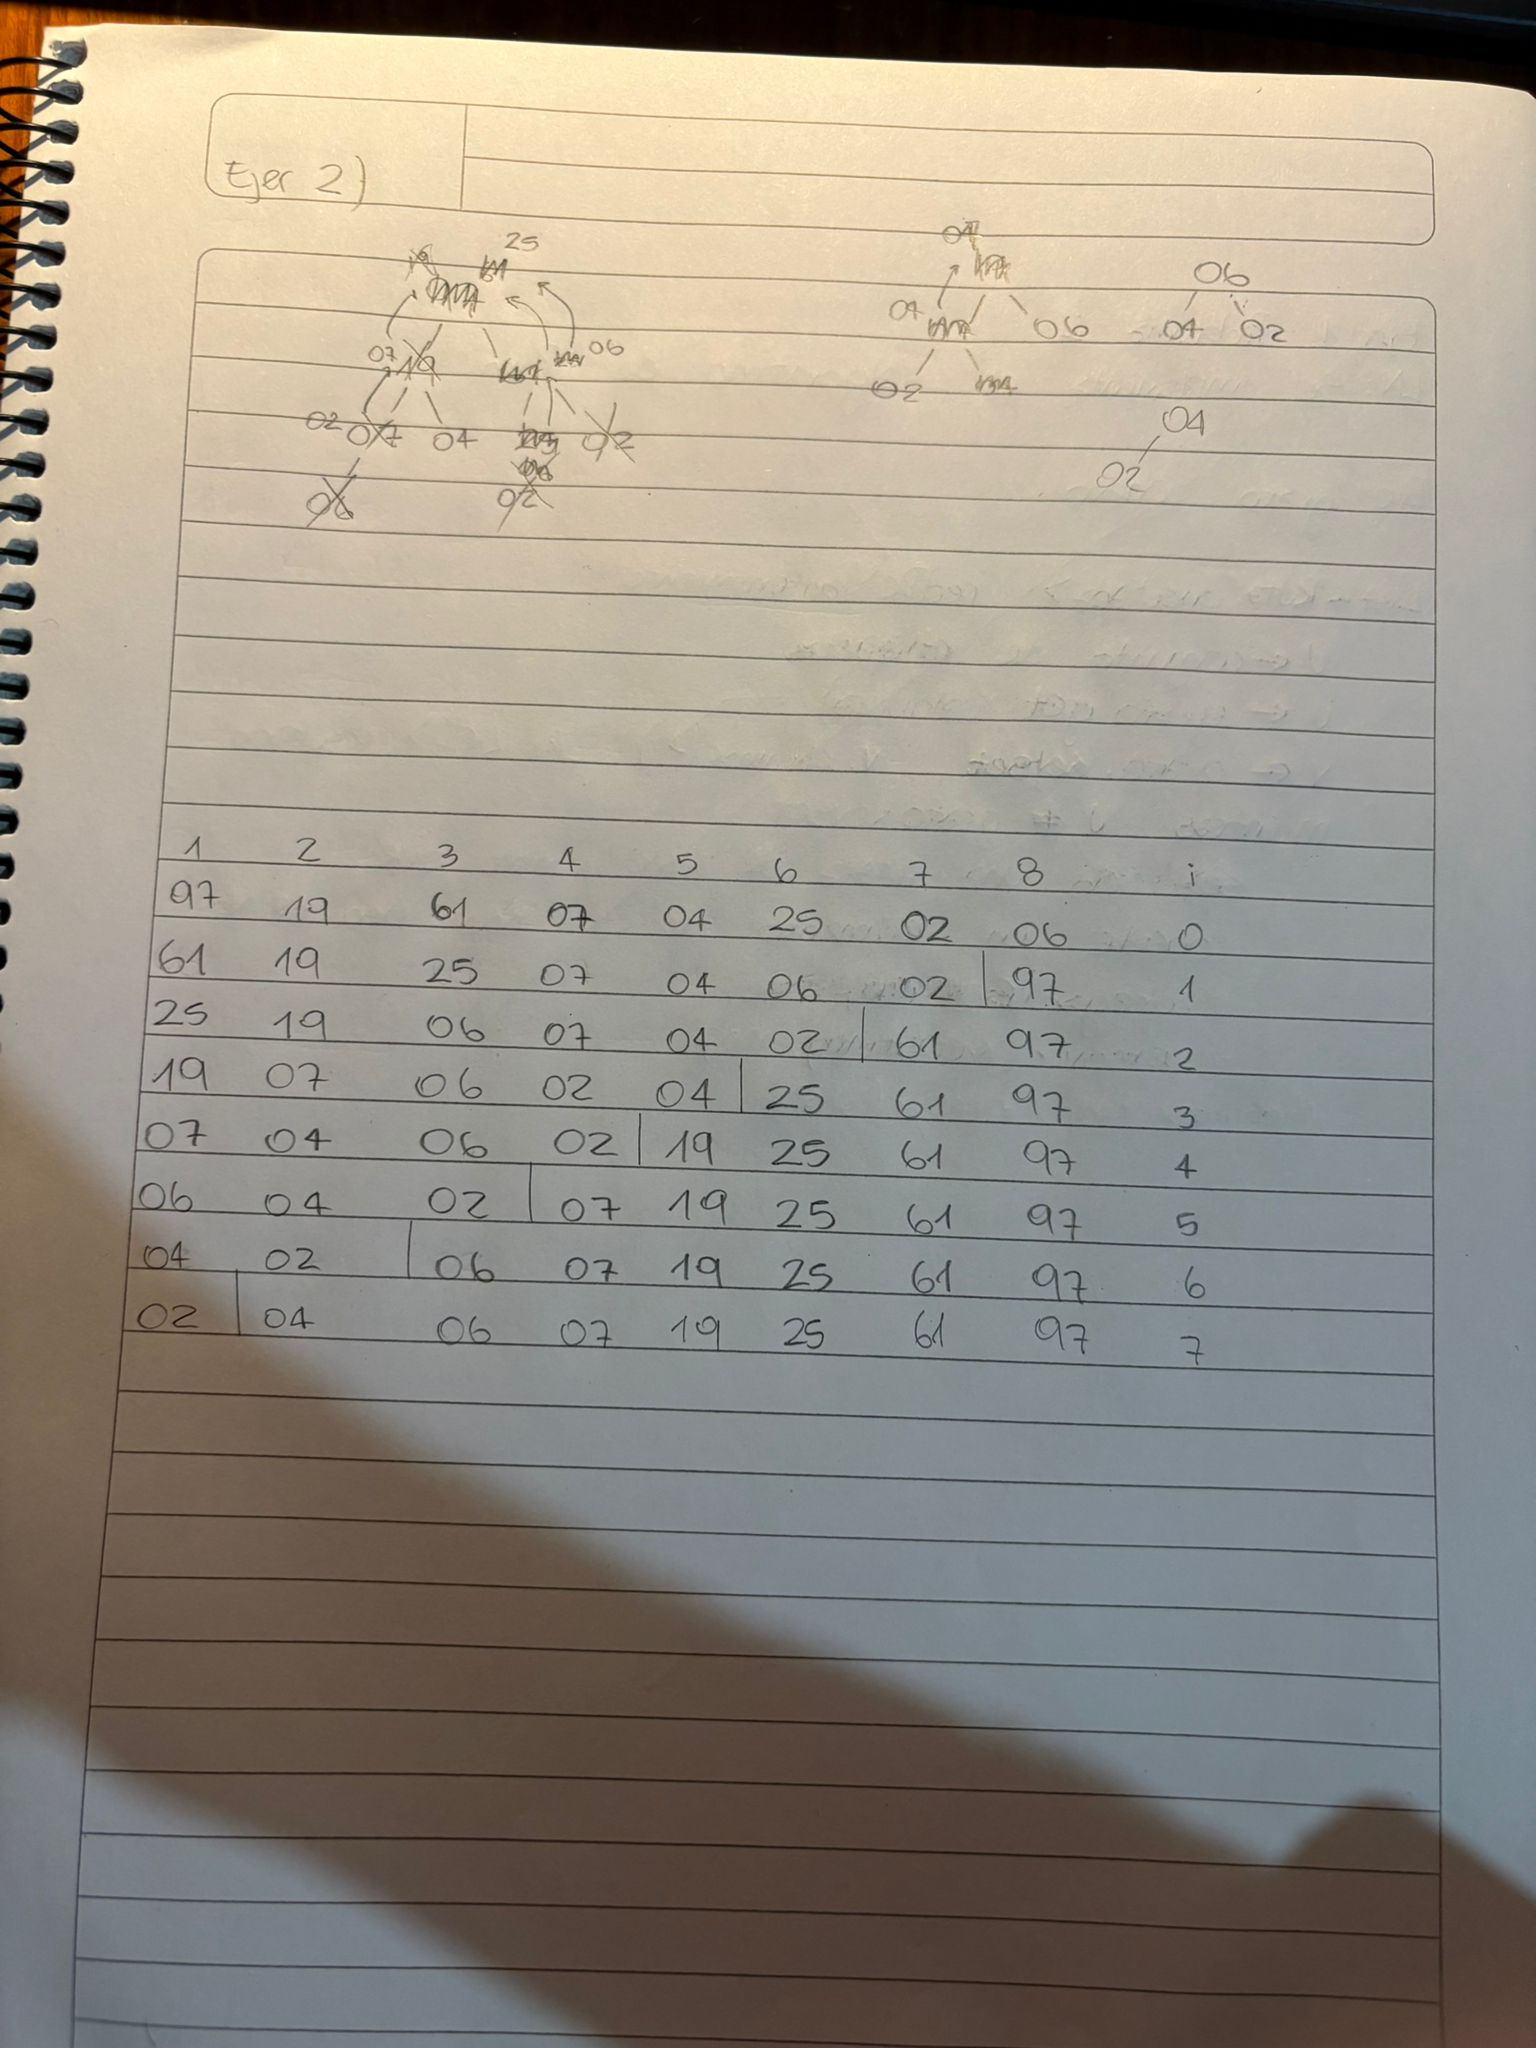 Ejer 2)
25
04
06
19
07
06
07
06
04 02
07 19
02
02 07 04 02
04
02
06 02
1 2 3 4 5 6 7 8 i
97 19 61 07 04 25 02 06 0
61 19 25 07 04 06 02 97 1
25 19 06 07 04 02 61 97 2
19 07 06 02 04 25 61 97 3
07 04 06 02 19 25 61 97 4
06 04 02 07 19 25 61 97 5
04 02 06 07 19 25 61 97 6
02 04 06 07 19 25 61 97 7